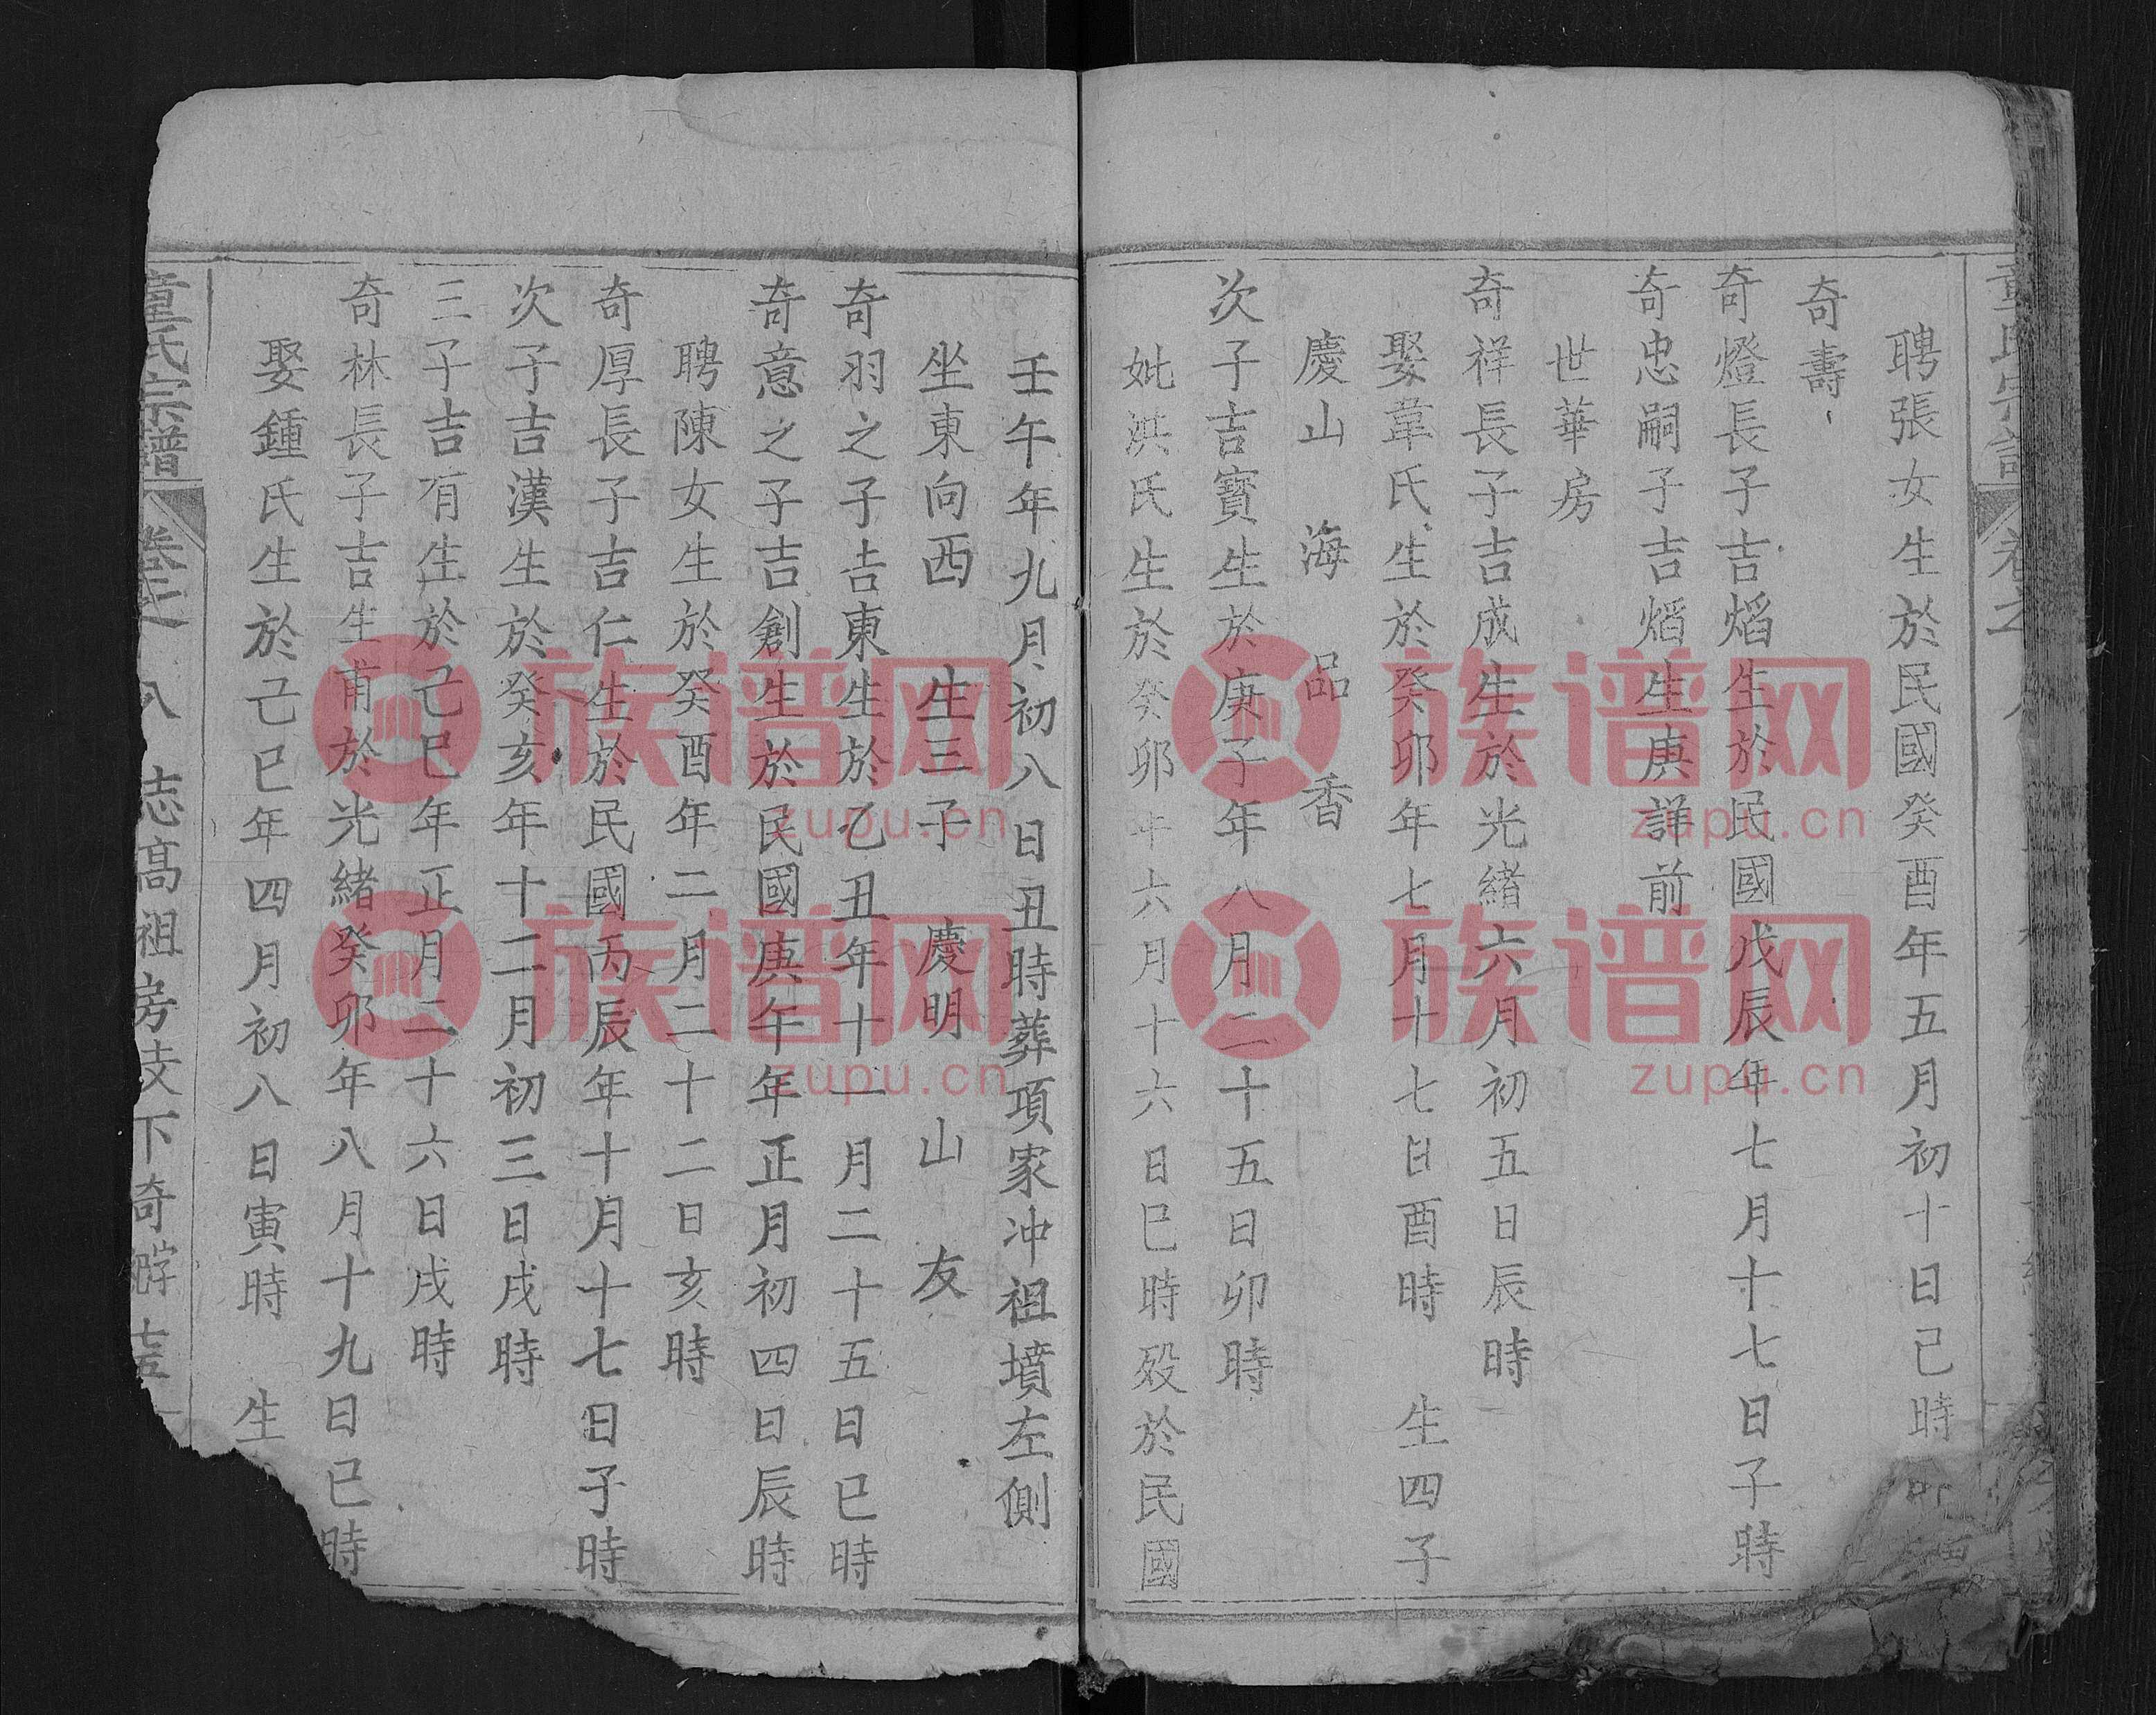 聘張女生於民國癸酉年五月初十日己時
奇壽
奇燈長子吉熖生於民國戊辰年七月十七日子時
奇忠嗣子吉熖生庚詳前
世華房
奇祥長子吉成生於光緒六月初五日辰時
娶韋氏生於癸卯年七月十七日酉時 生四子
慶山 海 品 香
次子吉寶生於庚子年八月二十五日卯時
妣洪氏生於癸卯年六月十六日巳時殁於民國
壬午年九月初八日丑時葬項家冲祖墳左側
坐東向西 生三子 慶明 山 友
奇羽之子吉東生於乙丑年十一月二十五日已時
奇意之子吉創生於民國庚午年正月初四日辰時
聘陳女生於癸酉年二月二十二日亥時
奇厚長子吉仁生於民國丙辰年十月十七日子時
次子吉漢生於癸亥年十二月初三日戌時
三子吉有生於己巳年正月二十六日戌時
奇林長子吉生甫於光緒癸卯年八月十九日已時
娶鍾氏生於己巳年四月初八日寅時 生
童氏宗譜 卷之八 志高祖房支下奇
族谱网
zupu.cn
族谱网
zupu.cn
族谱网
zupu.cn
族谱网
zupu.cn